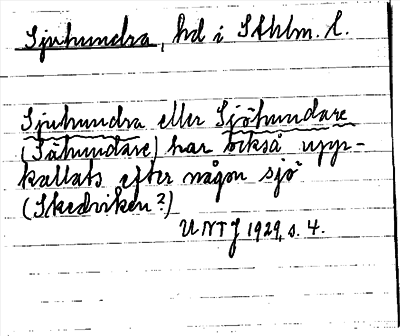 Sjuhundra, hd i Sthlm. l.
Sjuhundra eller Sjöhundare
(Siähundare) har också upp-
kallats efter någon sjö
(Skedviken?)
UNT J 1929, s. 4.